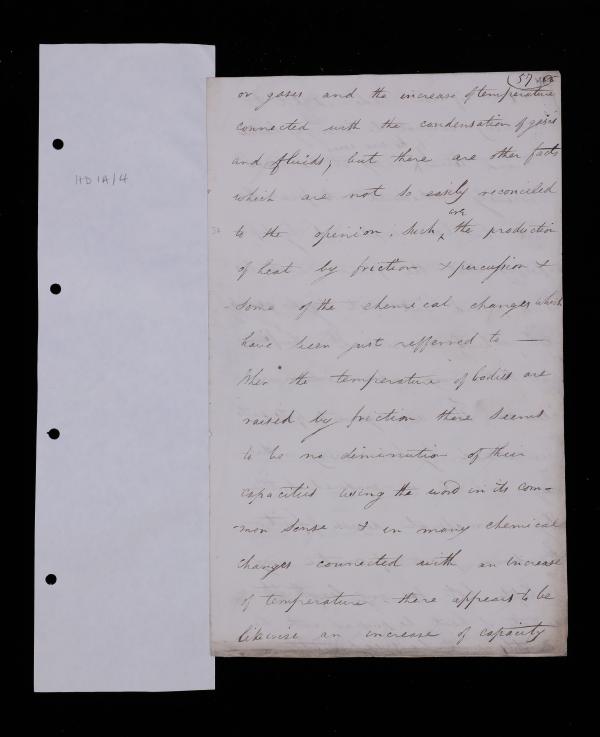 57
HD 1A/4
or gases and the increase of temperature
connected with the condensation of gases
and fluids; but there are other facts
which are not so easily reconciled
are
to the opinion; such ‸ the production
of heat by friction & percussion &
some of the chemical changes which
have been just refferred to —
When the temperature of bodies are
raised by friction there seems
to be no diminution of their
capacities using the word in its com-
-mon sense & in many chemical
changes connected with an increase
of temperature there appears to be
likewise an increase of capacity